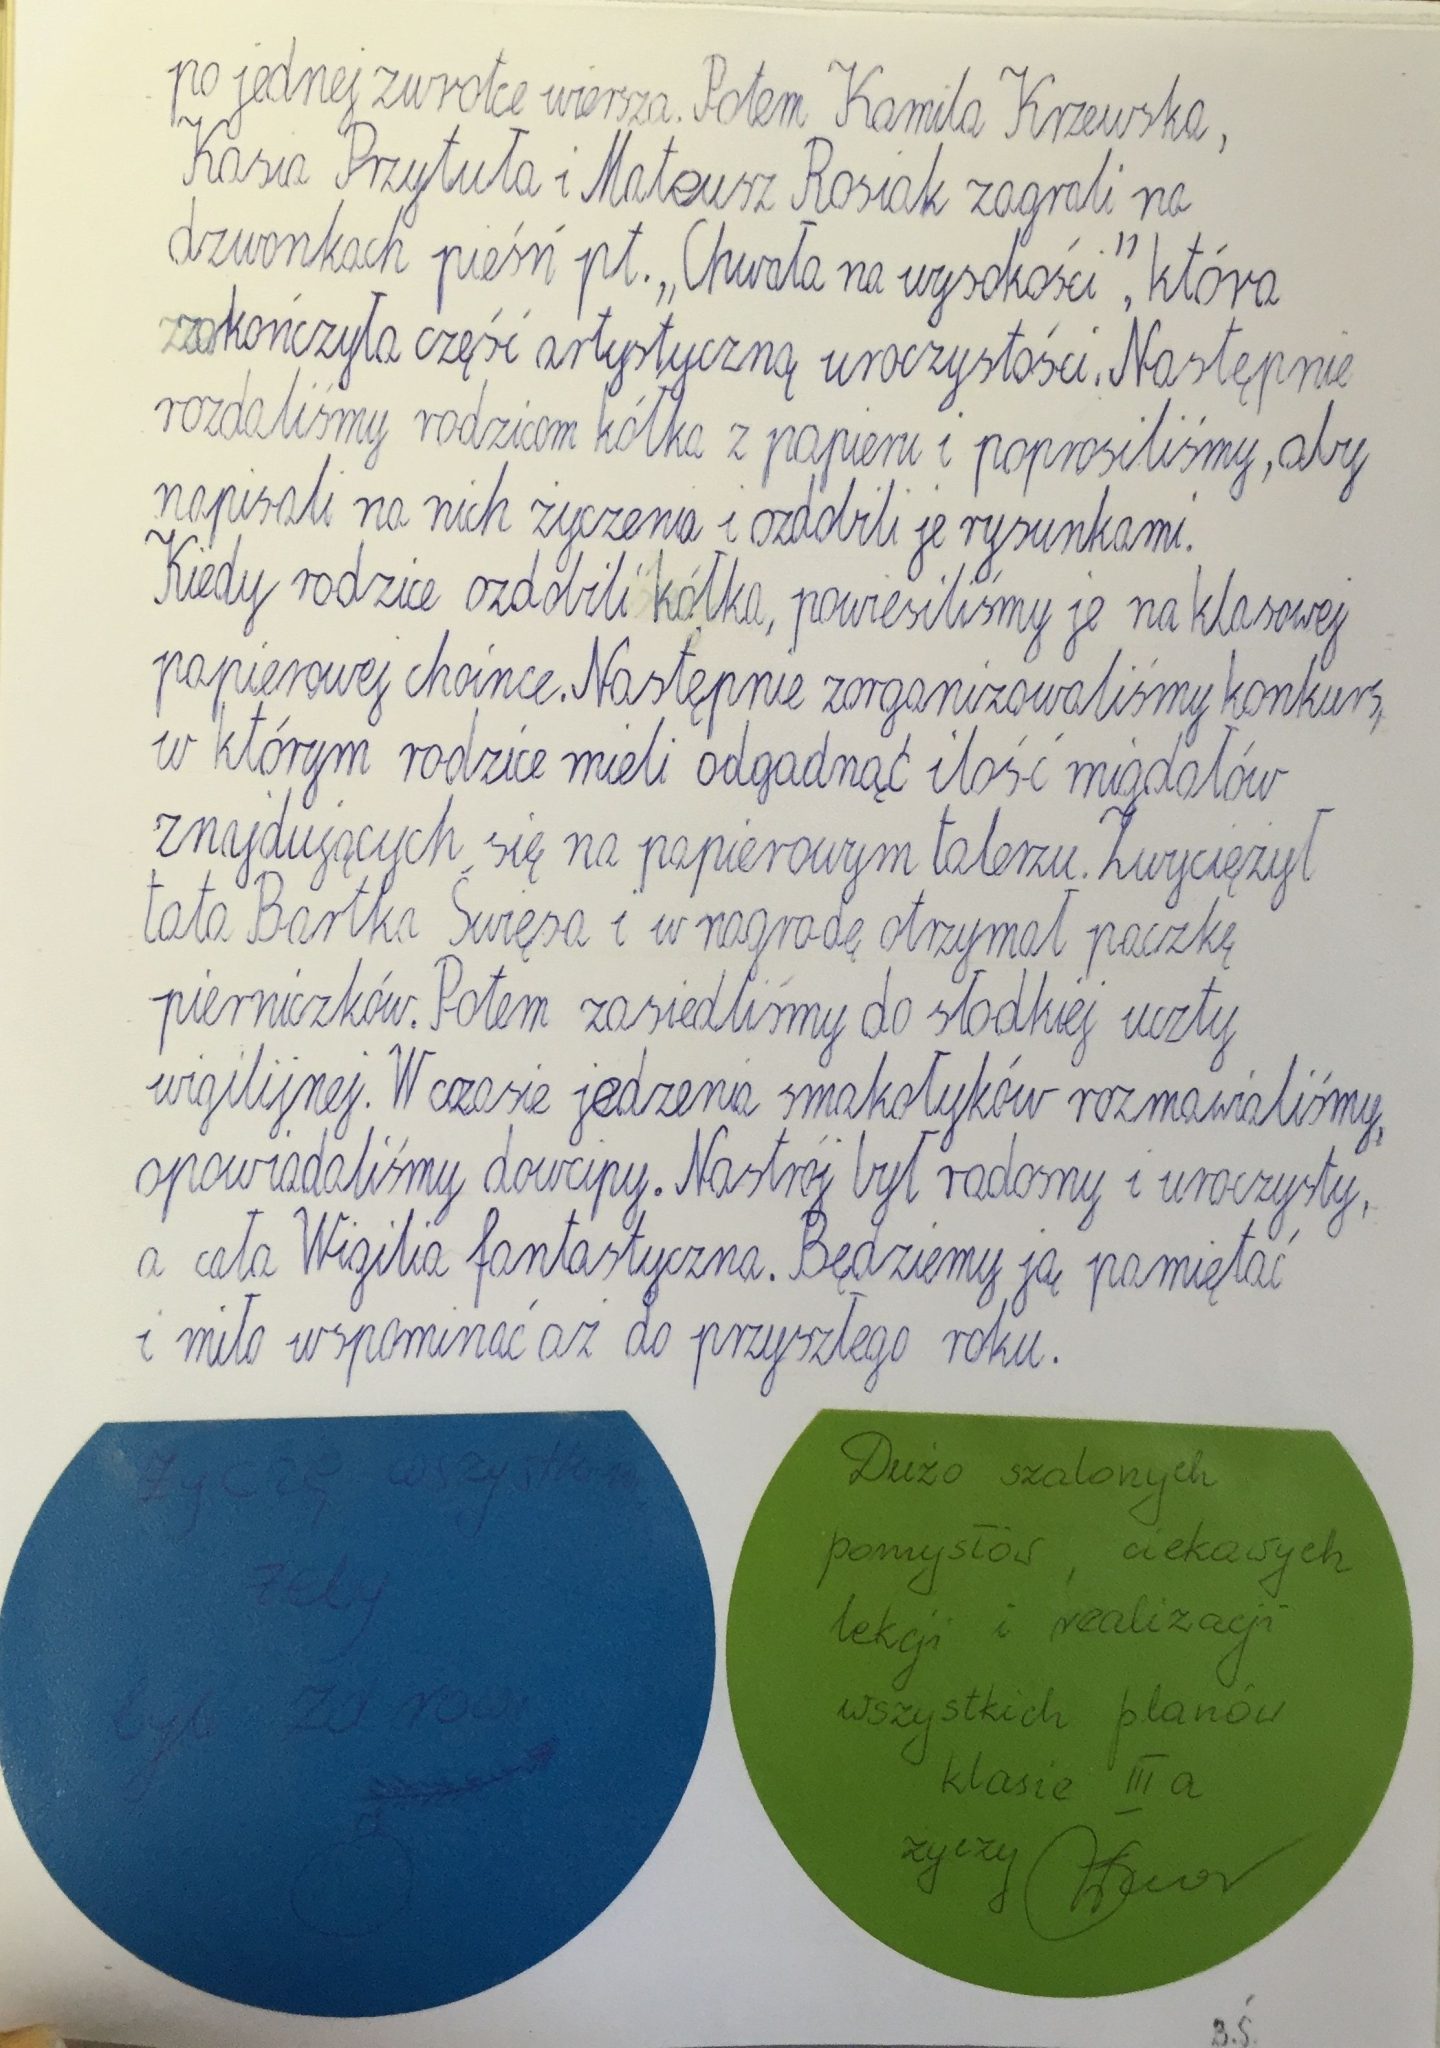 po jednej zwrotce wiersza. Potem Kamila Krzewska,
Kasia Przytuła i Mateusz Rosiak zagrali na
dzwonkach pieśń pt. „Chwała na wysokości”, która
zakończyła część artystyczną uroczystości. Następnie
rozdaliśmy rodzicom kółka z papieru i poprosiliśmy, aby
napisali na nich życzenia i ozdobili je rysunkami.
Kiedy rodzice ozdobili kółka, powiesiliśmy je na klasowej
papierowej choince. Następnie zorganizowaliśmy konkurs,
w którym rodzice mieli odgadnąć ilość migdałów
znajdujących się na papierowym talerzu. Zwyciężył
tata Bartka Święsa i w nagrodę otrzymał paczkę
pierniczków. Potem zasiedliśmy do słodkiej uczty
wigilijnej. W czasie jedzenia smakołyków rozmawialiśmy,
opowiadaliśmy dowcipy. Nastrój był radosny i uroczysty,
a cała Wigilia fantastyczna. Będziemy ją pamiętać
i miło wspominać aż do przyszłego roku.
życzę wszystkim
żeby
byli zdrowi
Dużo szalonych
pomysłów, ciekawych
lekcji i realizacji
wszystkich planów
klasie III a
życzy
B.Ś.